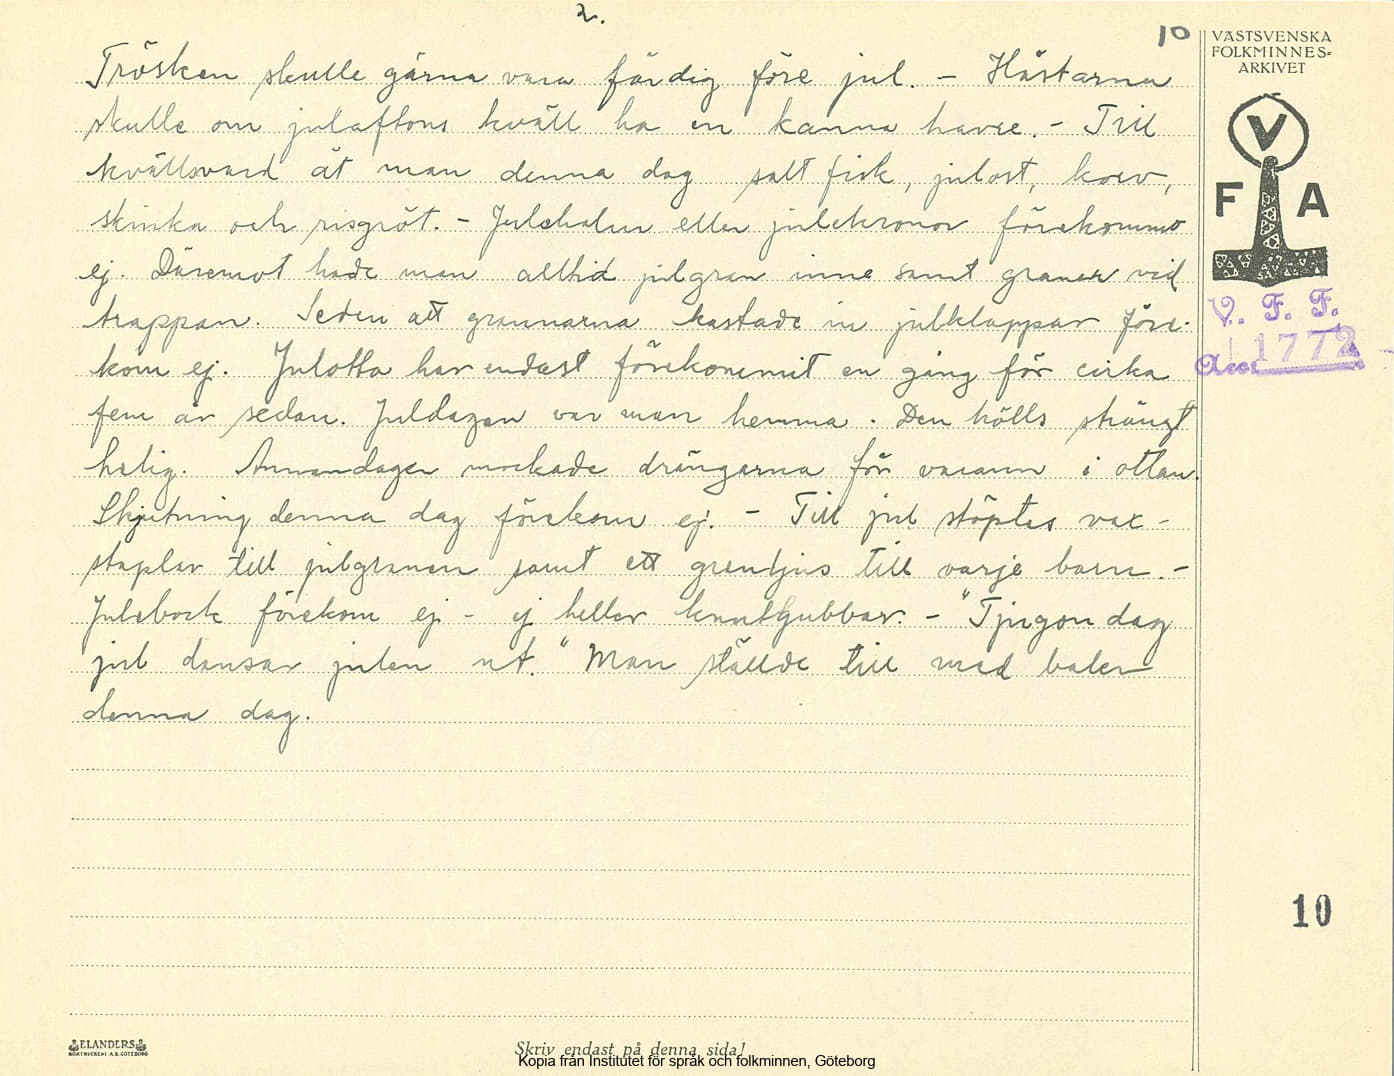 2.
10
VÄSTSVENSKA
FOLKMINNES-
ARKIVET
V
F A
V. F. F.
Acc. 1772
Trösken skulle gärna vara färdig före jul. – Hästarna
skulle om julaftons kväll ha en kanna havre. – Till
kvällsvard åt man denna dag salt fisk, julost, korv,
skinka och risgröt. – Julehalm eller julekronor förekommo
ej. Däremot hade man alltid julgran inne samt granar vid
trappan. Seden att grannarna kastade in julklappar före-
kom ej. Julotta har endast förekommit en gång för cirka
fem år sedan. Juldagen var man hemma. Den hölls strängt
helig. Annandagen mockade drängarna för varann i ottan.
Skjutning denna dag förekom ej. – Till jul stöptes vax-
staplar till julgranen samt ett grenljus till varje barn. –
Julebock förekom ej – ej heller knutgubbar. – "Tjugondag
jul dansar julen ut." Man ställde till med baler
denna dag.
10
ELANDERS
BOKTRYCKERI A.B. GÖTEBORG
Skriv endast på denna sida!
Kopia från Institutet för språk och folkminnen, Göteborg